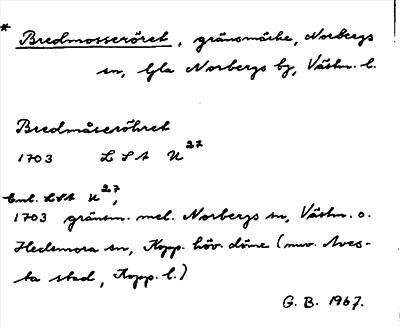 * Bredmosseröret, gränsmärke, Norbergs
sn, Gla Norbergs by, Västm. l.
Bredmåseröhret
1703 LSA U 27
Enl. LSA U 27,
1703 gränsm. mel. Norbergs sn, Västm. o.
Hedemora sn, Kopp. höv. döme (nuv. Aves-
ta stad, Kopp. l.)
G. B. 1967.